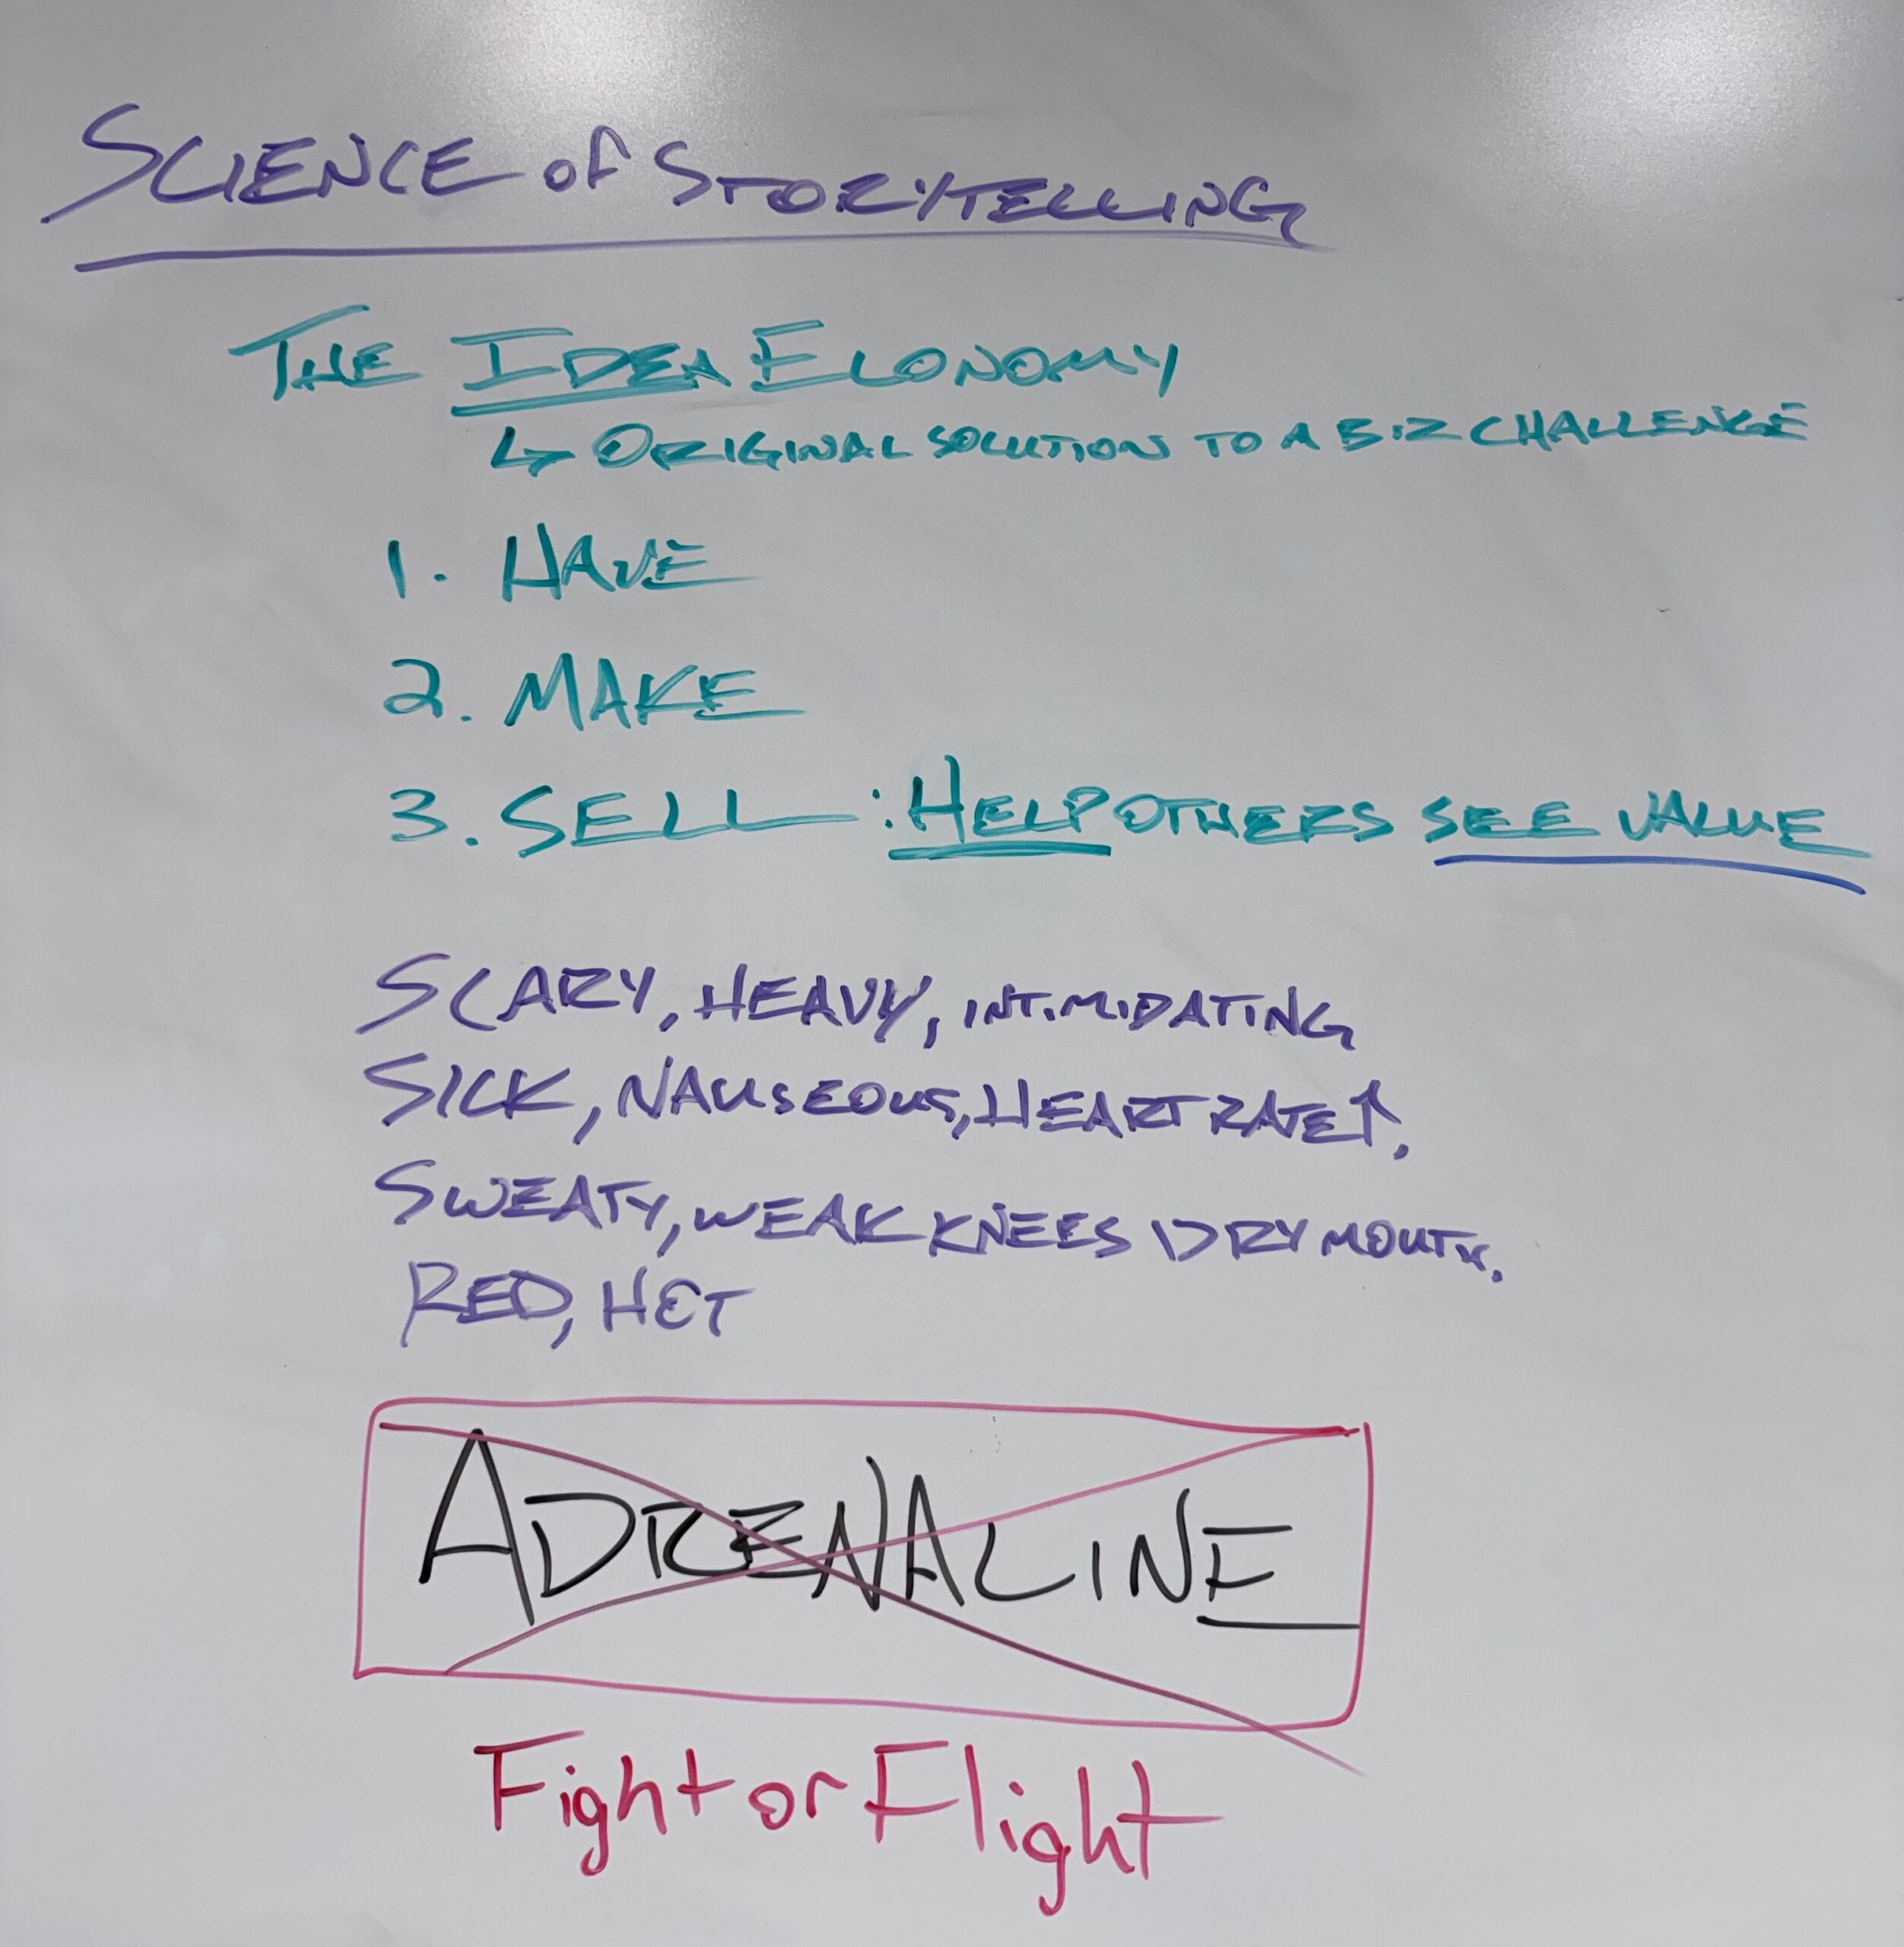 SCIENCE of STORYTELLING
THE IDEA ECONOMY
↳ ORIGINAL SOLUTION TO A BIZ CHALLENGE
1. HAVE
2. MAKE
3. SELL: HELP OTHERS SEE VALUE
SCARY, HEAVY, INTIMIDATING
SICK, NAUSEOUS, HEART RATE↑,
SWEATY, WEAK KNEES, DRY MOUTH,
RED, HOT
ADRENALINE
Fight or Flight